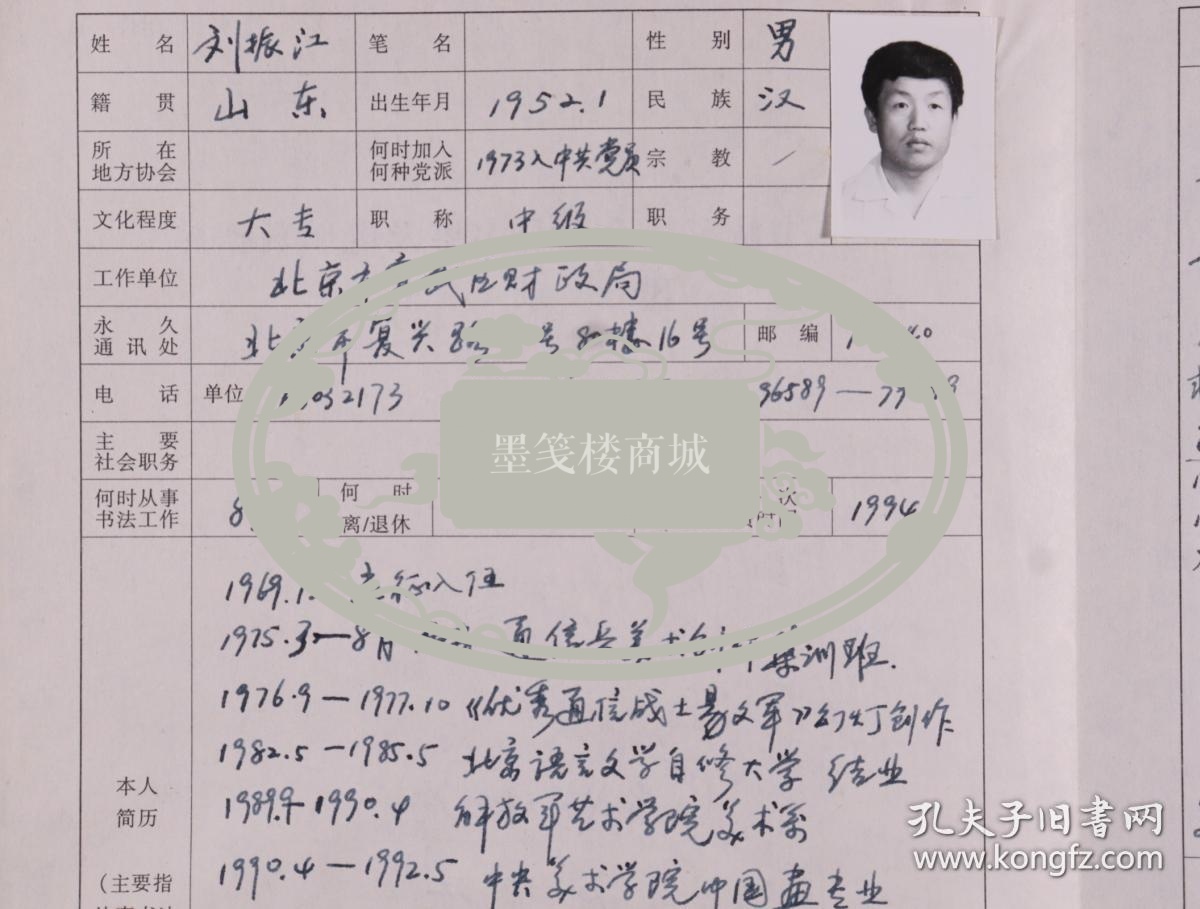 姓 名 刘振江 笔 名 性 别 男
籍 贯 山东 出生年月 1952.1 民 族 汉
所 在
地方协会 何时加入
何种党派 1973入中共党员 宗 教 /
文化程度 大专 职 称 中级 职 务
工作单位 北京 财政局
永 久
通讯处 北 市复兴路 号 楼16号 邮 编
电 话 单位 2173 96589—
主 要
社会职务
何时从事
书法工作 8 何 时
离/退休 次 1994
本人
简历
(主要指
1969.1 入伍
1975.3—8月 通信兵美术 训班.
1976.9—1977.10《优秀通信战士 文军》幻灯创作
1982.5—1985.5 北京语言文学自修大学 结业
1989.9—1990.4 解放军艺术学院美术系
1990.4—1992.5 中央美术学院中国画专业
墨笺楼商城
孔夫子旧书网
www.kongfz.com